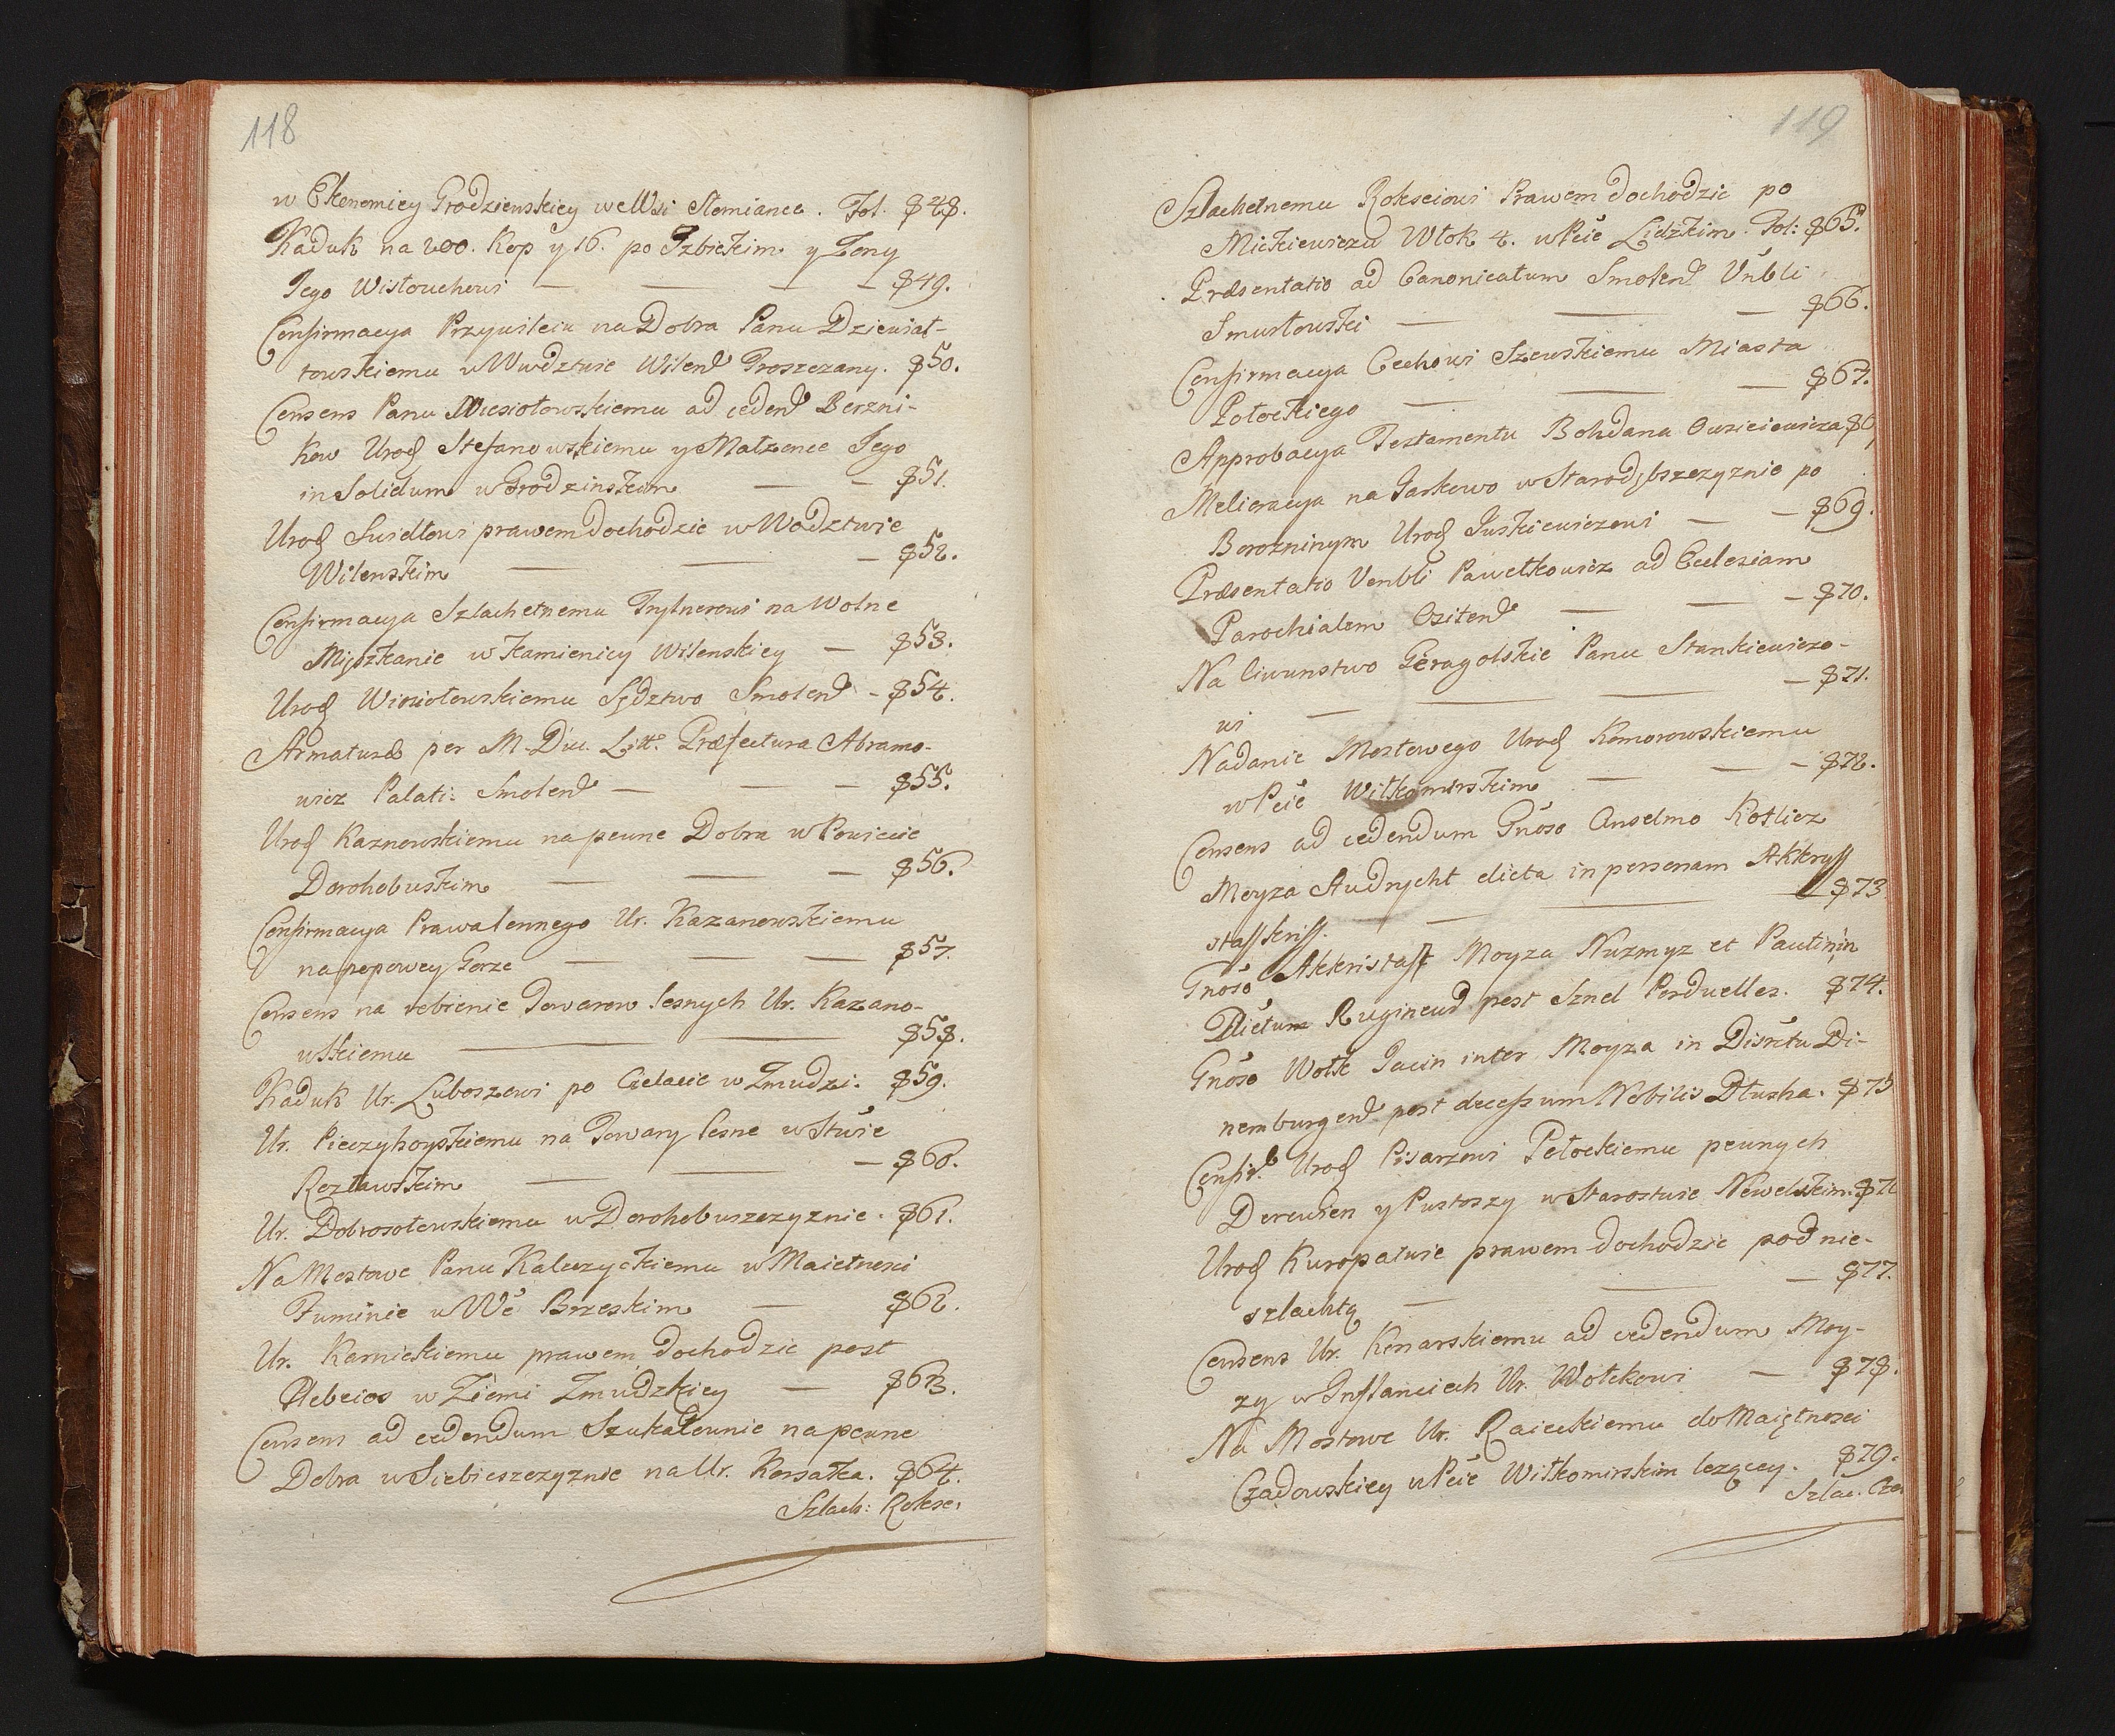 118
w Ekonomiey Grodzienskiey we Wsi Slomiance. Fol. 848.
Kaduk na 200. Kop y 16. po Izbickim y Zony
Jego Wislouchowi — — — — 849.
Confirmacya Przywileiu na Dobra Panu Dziewiał-
towskiemu w Wwdztwie Wilend Proszczany. 850.
Consens Panu Wiesiołowskiemu ad cedend Berzni-
kow Urod Stefanowskiemu y Małzonce Jego
in Solidum w Grodzinskim — — 851.
Urod Suidłowi prawem dochodzic w Wodztwie
Wilenskim — — — 852.
Confirmacya Szlachetnemu Tryznerowi na Wolne
Mięszkanie w kamienicy Wilenskiey — 853.
Urod Winiołowskiemu Sędztwo Smolend - 854.
Armaturæ per M. Duc. Litt. Præfectura Abramo-
wicz Palati: Smolend — — — 855.
Urod Kaznowskiemu na pewne Dobra w Powiecie
Dorohobuskim — — — 856.
Confirmacya Prawa lennego Ur. Kazanowskiemu
na popowey Gorze — — — 857.
Consens na robienie Towarow lesnych Ur. Kazano-
wskiemu — — 858.
Kaduk Ur. Luboszowi po Cielacie w Zmudzi. 859.
Ur. Pieczyhoyskiemu na Towary lesne w Stwie
Rozławskim — — — 860.
Ur. Dobrosołowskiemu w Dorohobuszczyznie. 861.
Na Mostowe Panu Kaleczyckiemu w Maietnosci
Tuminie w Wé Brzeskim — 862.
Ur. Karnickiemu prawem dochodzic post
Plebeios w Ziemi Zmudzkiey — 863.
Consens ad cedendum Szukałcunie na pewne
Dobra w Siebieszczyznie na Ur. Korsaka. 864.
Szlach: Rokse:
119
Szlachetnemu Roksciowi Prawem dochodzic po
Mickiewiczu Włok 4. w Pcie Lidzkim. Fol: 865.
Præsentatio ad Canonicatum Smolend Vnbli
Smurłowski — — — 866.
Confirmacya Cechowi Szewskiemu Miasta
Połockiego — — — 867.
Approbacya Testamentu Bohdana Owsieiewicza 86
Melioracya na Jarkowo w Starodębszczyznie po
Borozninym Urod Juskiewiczowi — — 869.
Præsentatio Venbli Pawełkowicz ad Ecclesiam
Parochialem Ozitend — — — 870.
Na Ciwunstwo Geragolskie Panu Stankiewiczo-
wi — — — — 871.
Nadanie Mostowego Urod Komorowskiemu
w Pcie Wiłkomirskim — — — 872.
Consens ad cedendum Gnoso Anselmo Kotlicz
Moyza Audrycht dicta in personam Akkryss
staffkriss. — — — 873
Gnoso Akkristaff Moyza Nurmyz et Paulinin
Dictum Rugineud post Sznel Perduelles. 874.
Gnoso Wolk Jacin inter Moyza in Disrctu Di-
nemburgend post decessum Nobilis Dłusha. 875
Confir. Urod Pisarzowi Połockiemu pewnych
Derewien y Pustoszy w Starostwie Newelskim. 87
Urod Kuropatwie prawem dochodzic pod nie-
szlachtą — — — 877.
Consens Ur. Konarskiemu ad cedendum Moy-
zy w Inflanciech Ur. Wołkowi — 878.
Na Mostowe Ur. Raieckiemu do Maiętnosci
Czadowskiey w Pcie Wiłkomirskim lezącey. 879.
Szlac. Cze